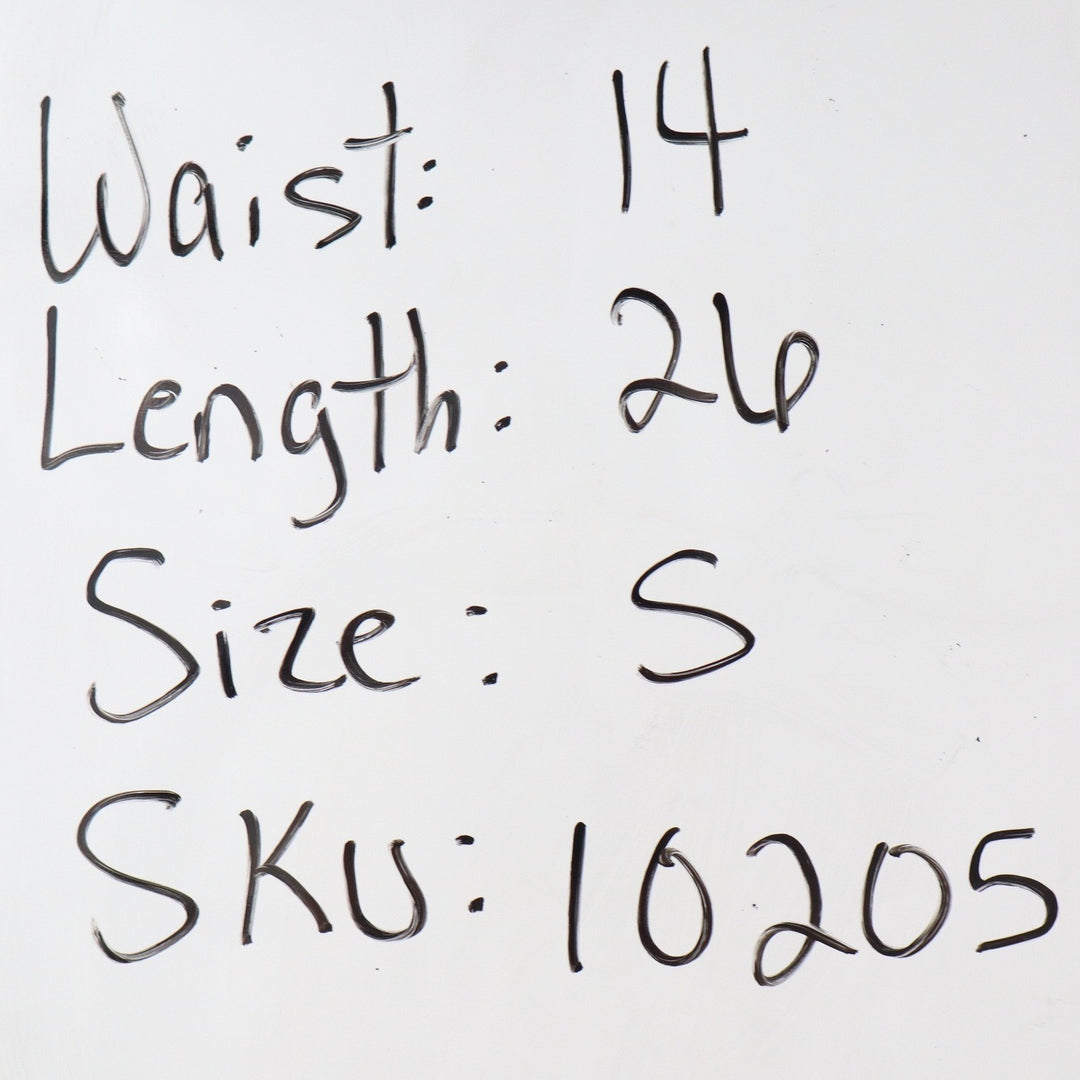 Waist: 14
Length: 26
Size: S
SKU: 10205